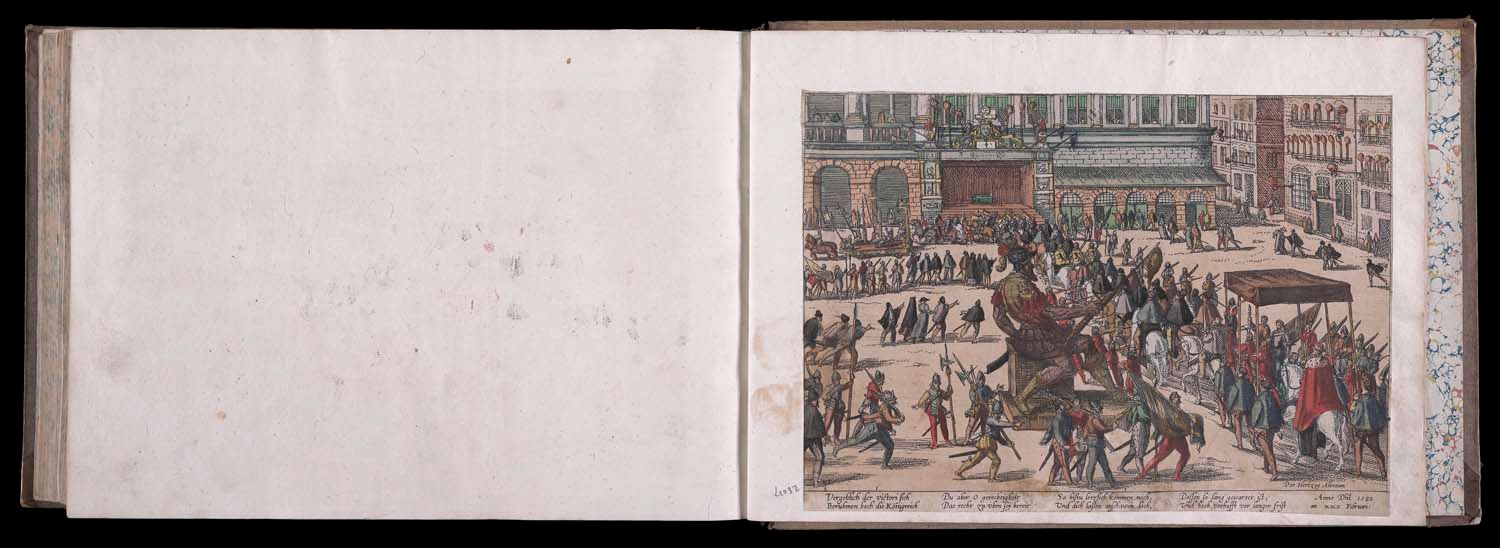 4032
Der Hertzog Alencon
Vergeblich der victori sich
Berühmen hoch die Königreich
Du aber O gerechtigkeit
Das recht zu uben sey bereit
So bistu letzlich kommen noch,
Und dich lassen anschauen doch,
Dessen so lang gewartet ist,
Und hoch verhofft vor langer frist
Anno Dñi 1582
m xxx Februari